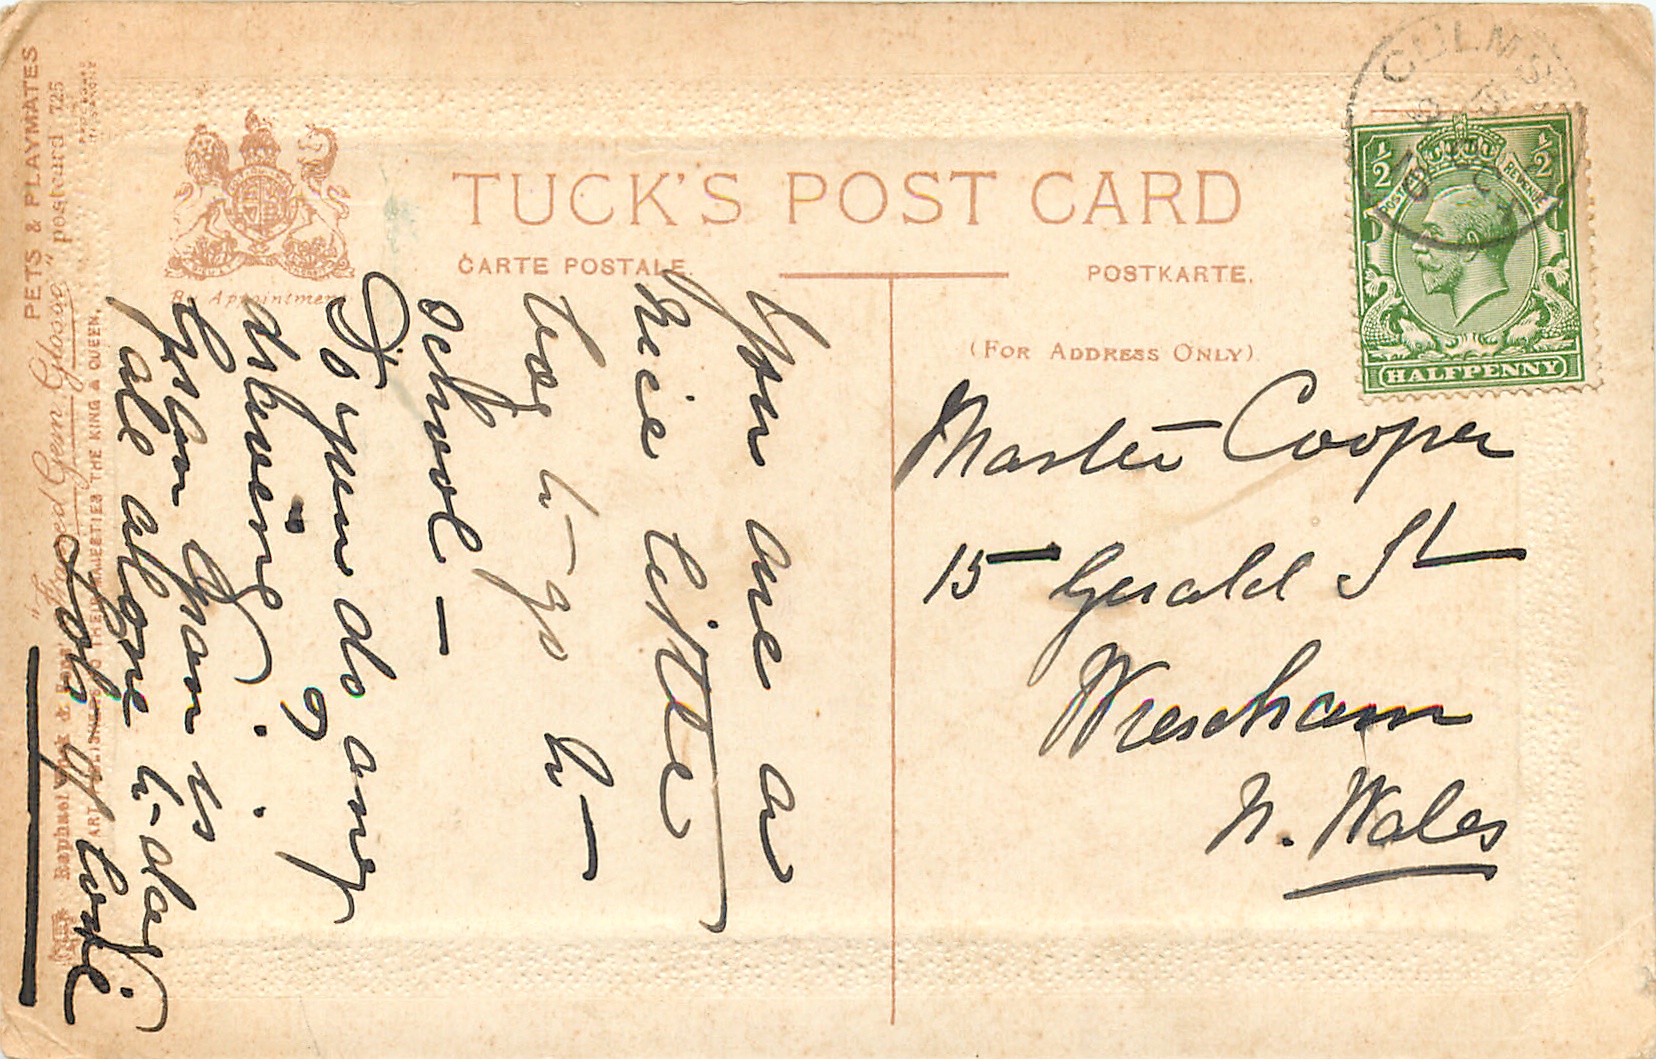 TUCK'S POST CARD
CARTE POSTALE.
POSTKARTE.
(FOR ADDRESS ONLY).
By Appointment
PETS & PLAYMATES
"Framed Gem Glosso" postcard 725
Raphael Tuck &
ART PUBLISHERS TO THEIR MAJESTIES THE KING & QUEEN.
CULMS
½
½
POSTAGE
REVENUE
HALFPENNY
Master Cooper
15 Gerald St
Wrexham
N. Wales
You are a
nice little
boy to go to
school –
Do you do any
drawing?
Gran is
all alone to-day.
Lots of love